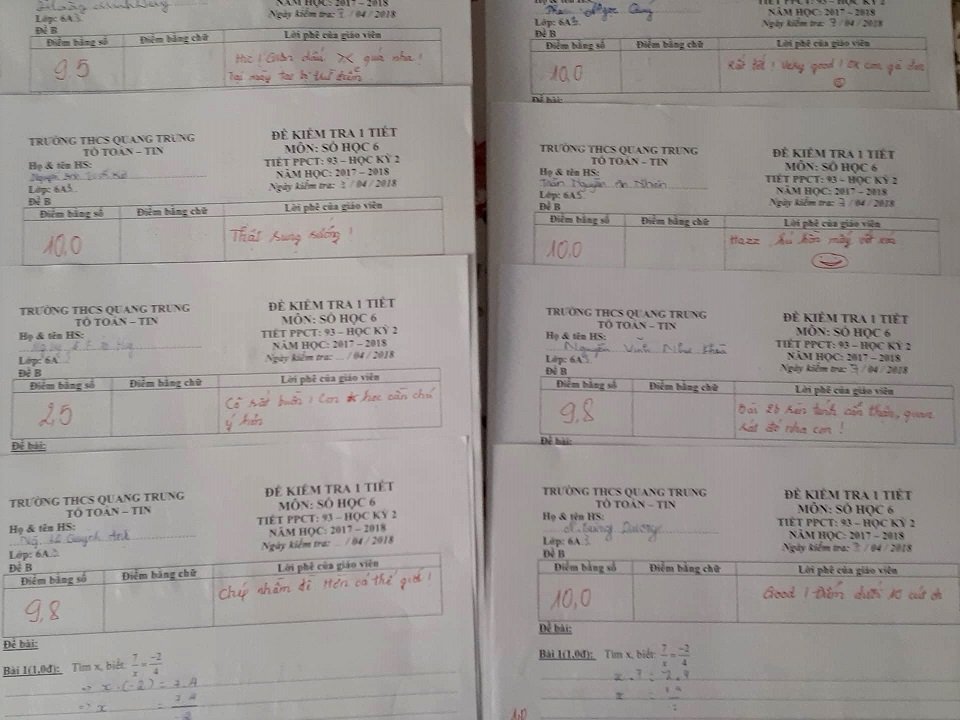 Lớp: 6A3
NĂM HỌC: 2017 – 2018
Ngày kiểm tra: 7 / 04 / 2018
Đề B
Điểm bằng số Điểm bằng chữ Lời phê của giáo viên
9.5
dấu quá nha!
TRƯỜNG THCS QUANG TRUNG
TỔ TOÁN – TIN
ĐỀ KIỂM TRA 1 TIẾT
MÔN: SỐ HỌC 6
TIẾT PPCT: 93 – HỌC KỲ 2
NĂM HỌC: 2017 – 2018
Ngày kiểm tra: / 04 / 2018
Họ & tên HS:
Lớp: 6A
Đề B
Điểm bằng số Điểm bằng chữ Lời phê của giáo viên
10,0
Thật sung sướng!
TRƯỜNG THCS QUANG TRUNG
TỔ TOÁN – TIN
ĐỀ KIỂM TRA 1 TIẾT
MÔN: SỐ HỌC 6
TIẾT PPCT: 93 – HỌC KỲ 2
NĂM HỌC: 2017 – 2018
Ngày kiểm tra: ... / 04 / 2018
Họ & tên HS:
Lớp: 6A
Đề B
Điểm bằng số Điểm bằng chữ Lời phê của giáo viên
2,5
Cô rất buồn! Con học cần chú
ý hơn
Đề bài:
TRƯỜNG THCS QUANG TRUNG
TỔ TOÁN – TIN
ĐỀ KIỂM TRA 1 TIẾT
MÔN: SỐ HỌC 6
TIẾT PPCT: 93 – HỌC KỲ 2
NĂM HỌC: 2017 – 2018
Ngày kiểm tra: ... / 04 / 2018
Họ & tên HS:
Quỳnh Anh
Lớp: 6A
Đề B
Điểm bằng số Điểm bằng chữ Lời phê của giáo viên
9,8
Chép nhầm đề Hên cả thế giới!
Đề bài:
Bài 1(1,0đ): Tìm x, biết: 7/x = -2/4
=> x.(-2) = 7.4
=> x = 7.4
Ngọc
TIẾT PPCT: 93 – HỌC KỲ 2
NĂM HỌC: 2017 – 2018
Ngày kiểm tra: 7 / 04 / 2018
Lớp: 6A3
Đề B
Điểm bằng số Điểm bằng chữ Lời phê của giáo viên
10,0
Rất tốt! Very good! Ok con gà
Đề bài:
TRƯỜNG THCS QUANG TRUNG
TỔ TOÁN – TIN
ĐỀ KIỂM TRA 1 TIẾT
MÔN: SỐ HỌC 6
TIẾT PPCT: 93 – HỌC KỲ 2
NĂM HỌC: 2017 – 2018
Ngày kiểm tra: 7 / 04 / 2018
Họ & tên HS:
Trần Nguyễn An Nhiên
Lớp: 6A
Đề B
Điểm bằng số Điểm bằng chữ Lời phê của giáo viên
10,0
Hazz hú hồn mấy
TRƯỜNG THCS QUANG TRUNG
TỔ TOÁN – TIN
ĐỀ KIỂM TRA 1 TIẾT
MÔN: SỐ HỌC 6
TIẾT PPCT: 93 – HỌC KỲ 2
NĂM HỌC: 2017 – 2018
Ngày kiểm tra: 7 / 04 / 2018
Họ & tên HS:
Nguyễn Vĩnh Như
Lớp: 6A3
Đề B
Điểm bằng số Điểm bằng chữ Lời phê của giáo viên
9,8
Bài 2b tính cẩn thận, quan
sát đề nha con!
Đề bài:
TRƯỜNG THCS QUANG TRUNG
TỔ TOÁN – TIN
ĐỀ KIỂM TRA 1 TIẾT
MÔN: SỐ HỌC 6
TIẾT PPCT: 93 – HỌC KỲ 2
NĂM HỌC: 2017 – 2018
Ngày kiểm tra: 7 / 04 / 2018
Họ & tên HS:
Dương
Lớp: 6A3
Đề B
Điểm bằng số Điểm bằng chữ Lời phê của giáo viên
10,0
Good! Điểm dưới 10 cút đi
Đề bài:
Bài 1(1,0đ): Tìm x, biết: 7/x = -2/4
1,0